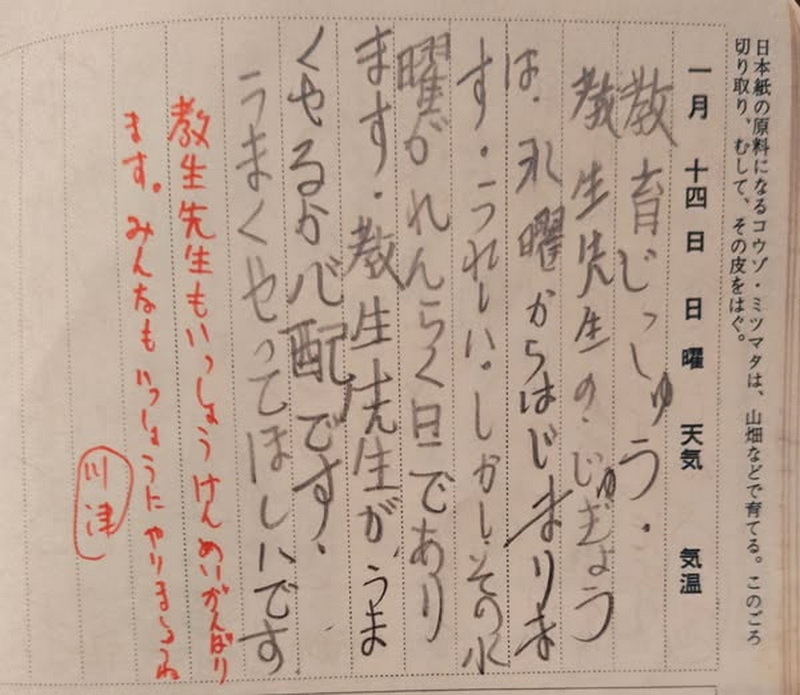 日本紙の原料になるコウゾ・ミツマタは、山畑などで育てる。このごろ
切り取り、むして、その皮をはぐ。
一月 十四日 日曜 天気 気温
教育じっしゅう.
教生先生の.じゅぎょう
は.水曜からはじまりま
す.うれしい.しかし.その水
曜がれんらく日であり
ます.教生先生が、うま
くやるか心配です.
うまくやってほしいです
教生先生もいっしょうけんめいがんばり
ます。みんなもいっしょうにやりましょうね
川津